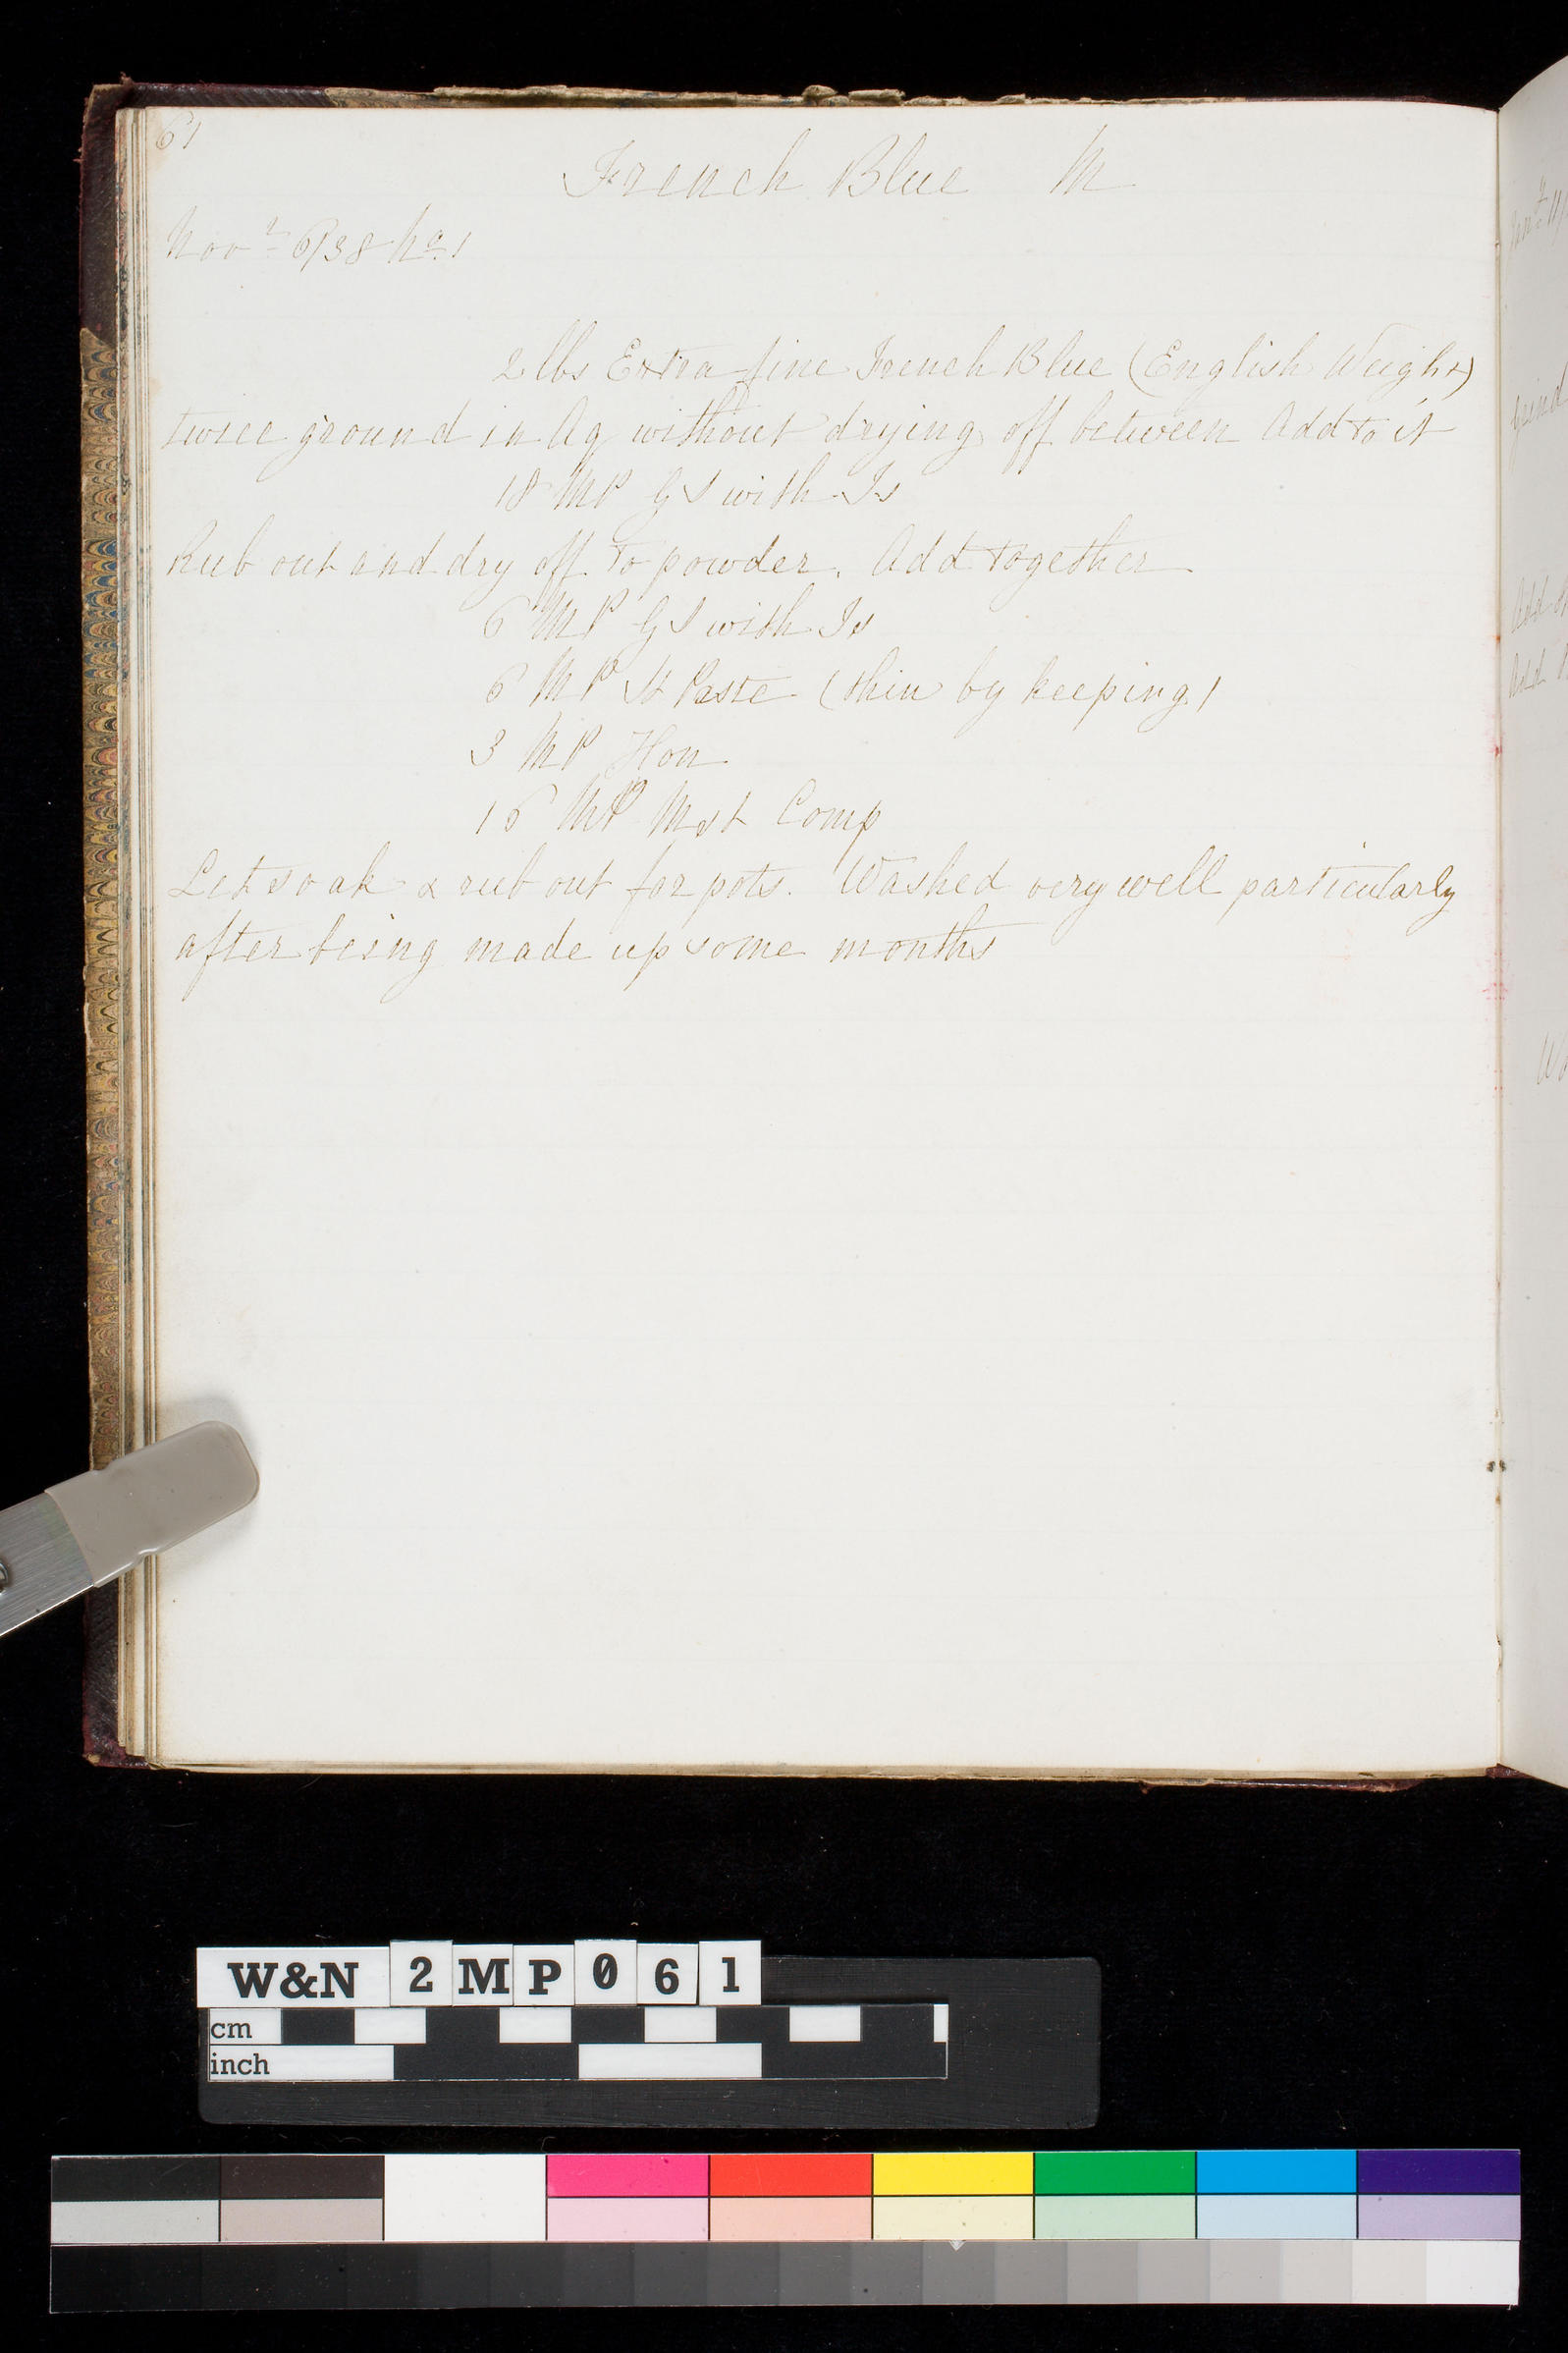 61
French Blue M
Novr 6/38 No 1
2 lbs Extra fine French Blue (English Weight)
twice ground in Aq without drying off between Add to it
18 MP GS with Is
Rub out and dry off to powder. Add together
6 MP GS with Is
6 MP St Paste (thin by keeping)
3 MP Hon
16 MP Mst Comp
Let soak & rub out for pots. Washed very well particularly
after being made up some months
grind
W&N 2MP061
cm
inch